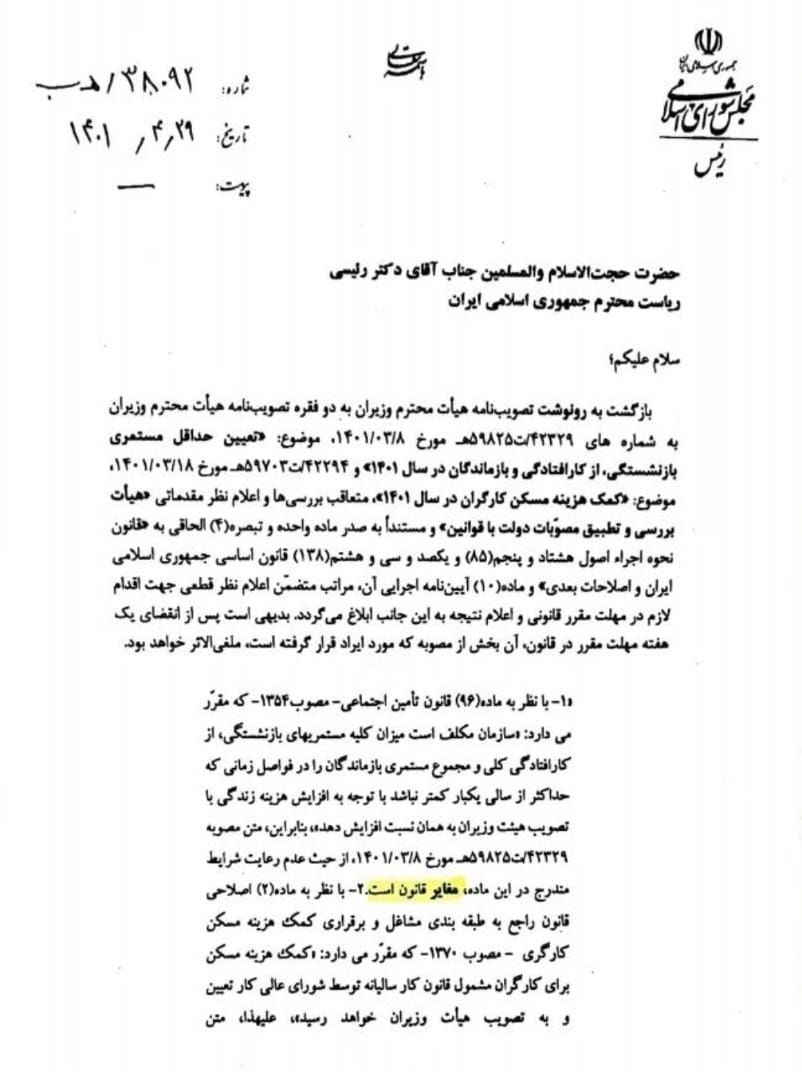 باسمه تعالی
جمهوری اسلامی ایران
مجلس شورای اسلامی
رئیس
شماره: ۳۸۰۹۲/هـ ب
تاریخ: ۱۴۰۱/۴/۲۹
پیوست: —
حضرت حجت‌الاسلام والمسلمین جناب آقای دکتر رئیسی
ریاست محترم جمهوری اسلامی ایران
سلام علیکم؛
بازگشت به رونوشت تصویب‌نامه هیأت محترم وزیران به دو فقره تصویب‌نامه هیأت محترم وزیران
به شماره های ۴۲۳۲۹/ت۵۹۸۲۵هـ مورخ ۱۴۰۱/۰۳/۸، موضوع: «تعیین حداقل مستمری
بازنشستگی، از کارافتادگی و بازماندگان در سال ۱۴۰۱» و ۴۲۲۹۴/ت۵۹۷۰۳هـ مورخ ۱۴۰۱/۰۳/۱۸،
موضوع: «کمک هزینه مسکن کارگران در سال ۱۴۰۱»، متعاقب بررسی‌ها و اعلام نظر مقدماتی «هیأت
بررسی و تطبیق مصوّبات دولت با قوانین» و مستنداً به صدر ماده واحده و تبصره(۴) الحاقی به «قانون
نحوه اجراء اصول هشتاد و پنجم(۸۵) و یکصد و سی و هشتم(۱۳۸) قانون اساسی جمهوری اسلامی
ایران و اصلاحات بعدی» و ماده(۱۰) آیین‌نامه اجرایی آن، مراتب متضمّن اعلام نظر قطعی جهت اقدام
لازم در مهلت مقرر قانونی و اعلام نتیجه به این جانب ابلاغ می‌گردد. بدیهی است پس از انقضای یک
هفته مهلت مقرر در قانون، آن بخش از مصوبه که مورد ایراد قرار گرفته است، ملغی‌الاثر خواهد بود.
«۱- با نظر به ماده(۹۶) قانون تأمین اجتماعی- مصوب۱۳۵۴- که مقرّر
می دارد: «سازمان مکلف است میزان کلیه مستمریهای بازنشستگی، از
کارافتادگی کلی و مجموع مستمری بازماندگان را در فواصل زمانی که
حداکثر از سالی یکبار کمتر نباشد با توجه به افزایش هزینه زندگی با
تصویب هیئت وزیران به همان نسبت افزایش دهد»، بنابراین، متن مصوبه
۴۲۳۲۹/ت۵۹۸۲۵هـ مورخ ۱۴۰۱/۰۳/۸، از حیث عدم رعایت شرایط
مندرج در این ماده، مغایر قانون است.۲- با نظر به ماده(۲) اصلاحی
قانون راجع به طبقه بندی مشاغل و برقراری کمک هزینه مسکن
کارگری - مصوب ۱۳۷۰- که مقرّر می دارد: «کمک هزینه مسکن
برای کارگران مشمول قانون کار سالیانه توسط شورای عالی کار تعیین
و به تصویب هیأت وزیران خواهد رسید»، علیهذا، متن